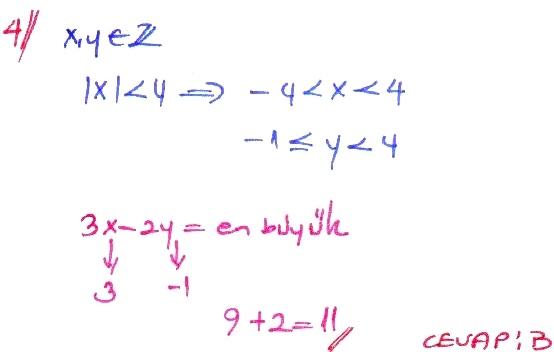 4// x,y ∈ Z
|x| < 4 ⇒ -4 < x < 4
-1 ≤ y < 4
3x - 2y = en büyük
↓ ↓
3 -1
9 + 2 = 11 //
CEVAP: B